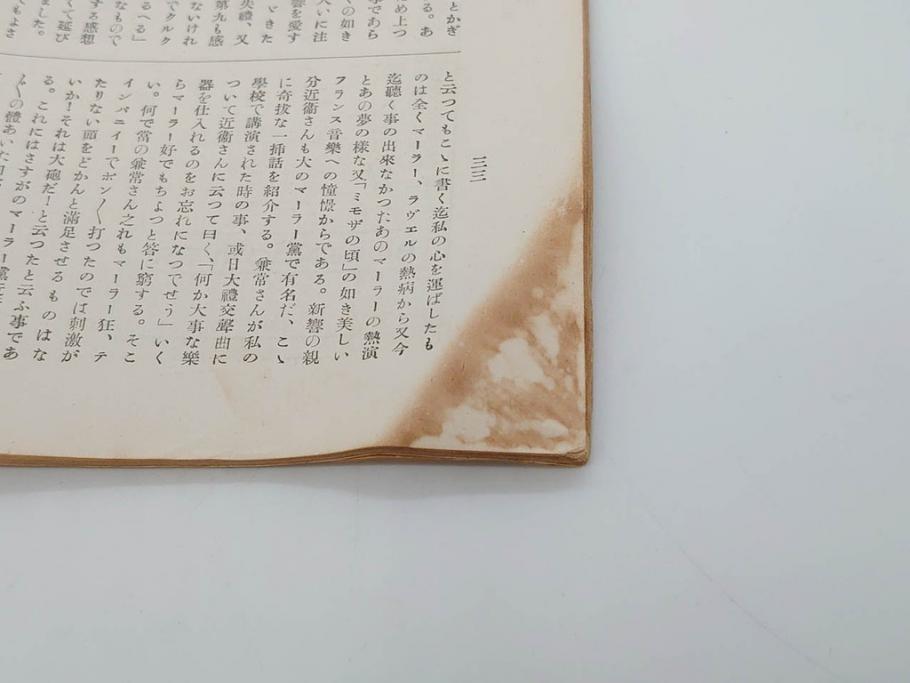 三三
とかぎ
る。あ
ため上つ
事であら
くの如き
大いに注
響を愛す
ときた
失禮、又
第九も感
ないけれ
でクルク
るへる」
なもので
する感想
くて延び
ました。
てもよさ
と云つてもこゝに書く迄私の心を運ばしたも
のは全くマーラー、ラヴエルの熱病から又今
迄聽く事の出來なかつたあのマーラーの熱演
とあの夢の樣な又「ミモザの頃」の如き美しい
フランス音樂への憧憬からである。新響の親
分近衞さんも大のマーラー黨で有名だ、こゝ
に奇拔な一挿話を紹介する。兼常さんが私の
學校で講演された時の事、或日大禮交聲曲に
ついて近衞さんに云つて曰く、「何か大事な樂
器を仕入れるのをお忘れになつでせう」いく
らマーラー好でもちよつと答に窮する。そこ
い。何で當の兼常さん之れもマーラー狂、テ
インパニイーでポン〳〵打つたのでは刺激が
たりない頭をどかんと滿足させるものはな
いか！それは大砲だ！と云つたと云ふ事であ
る。これにはさすがのマーラー黨